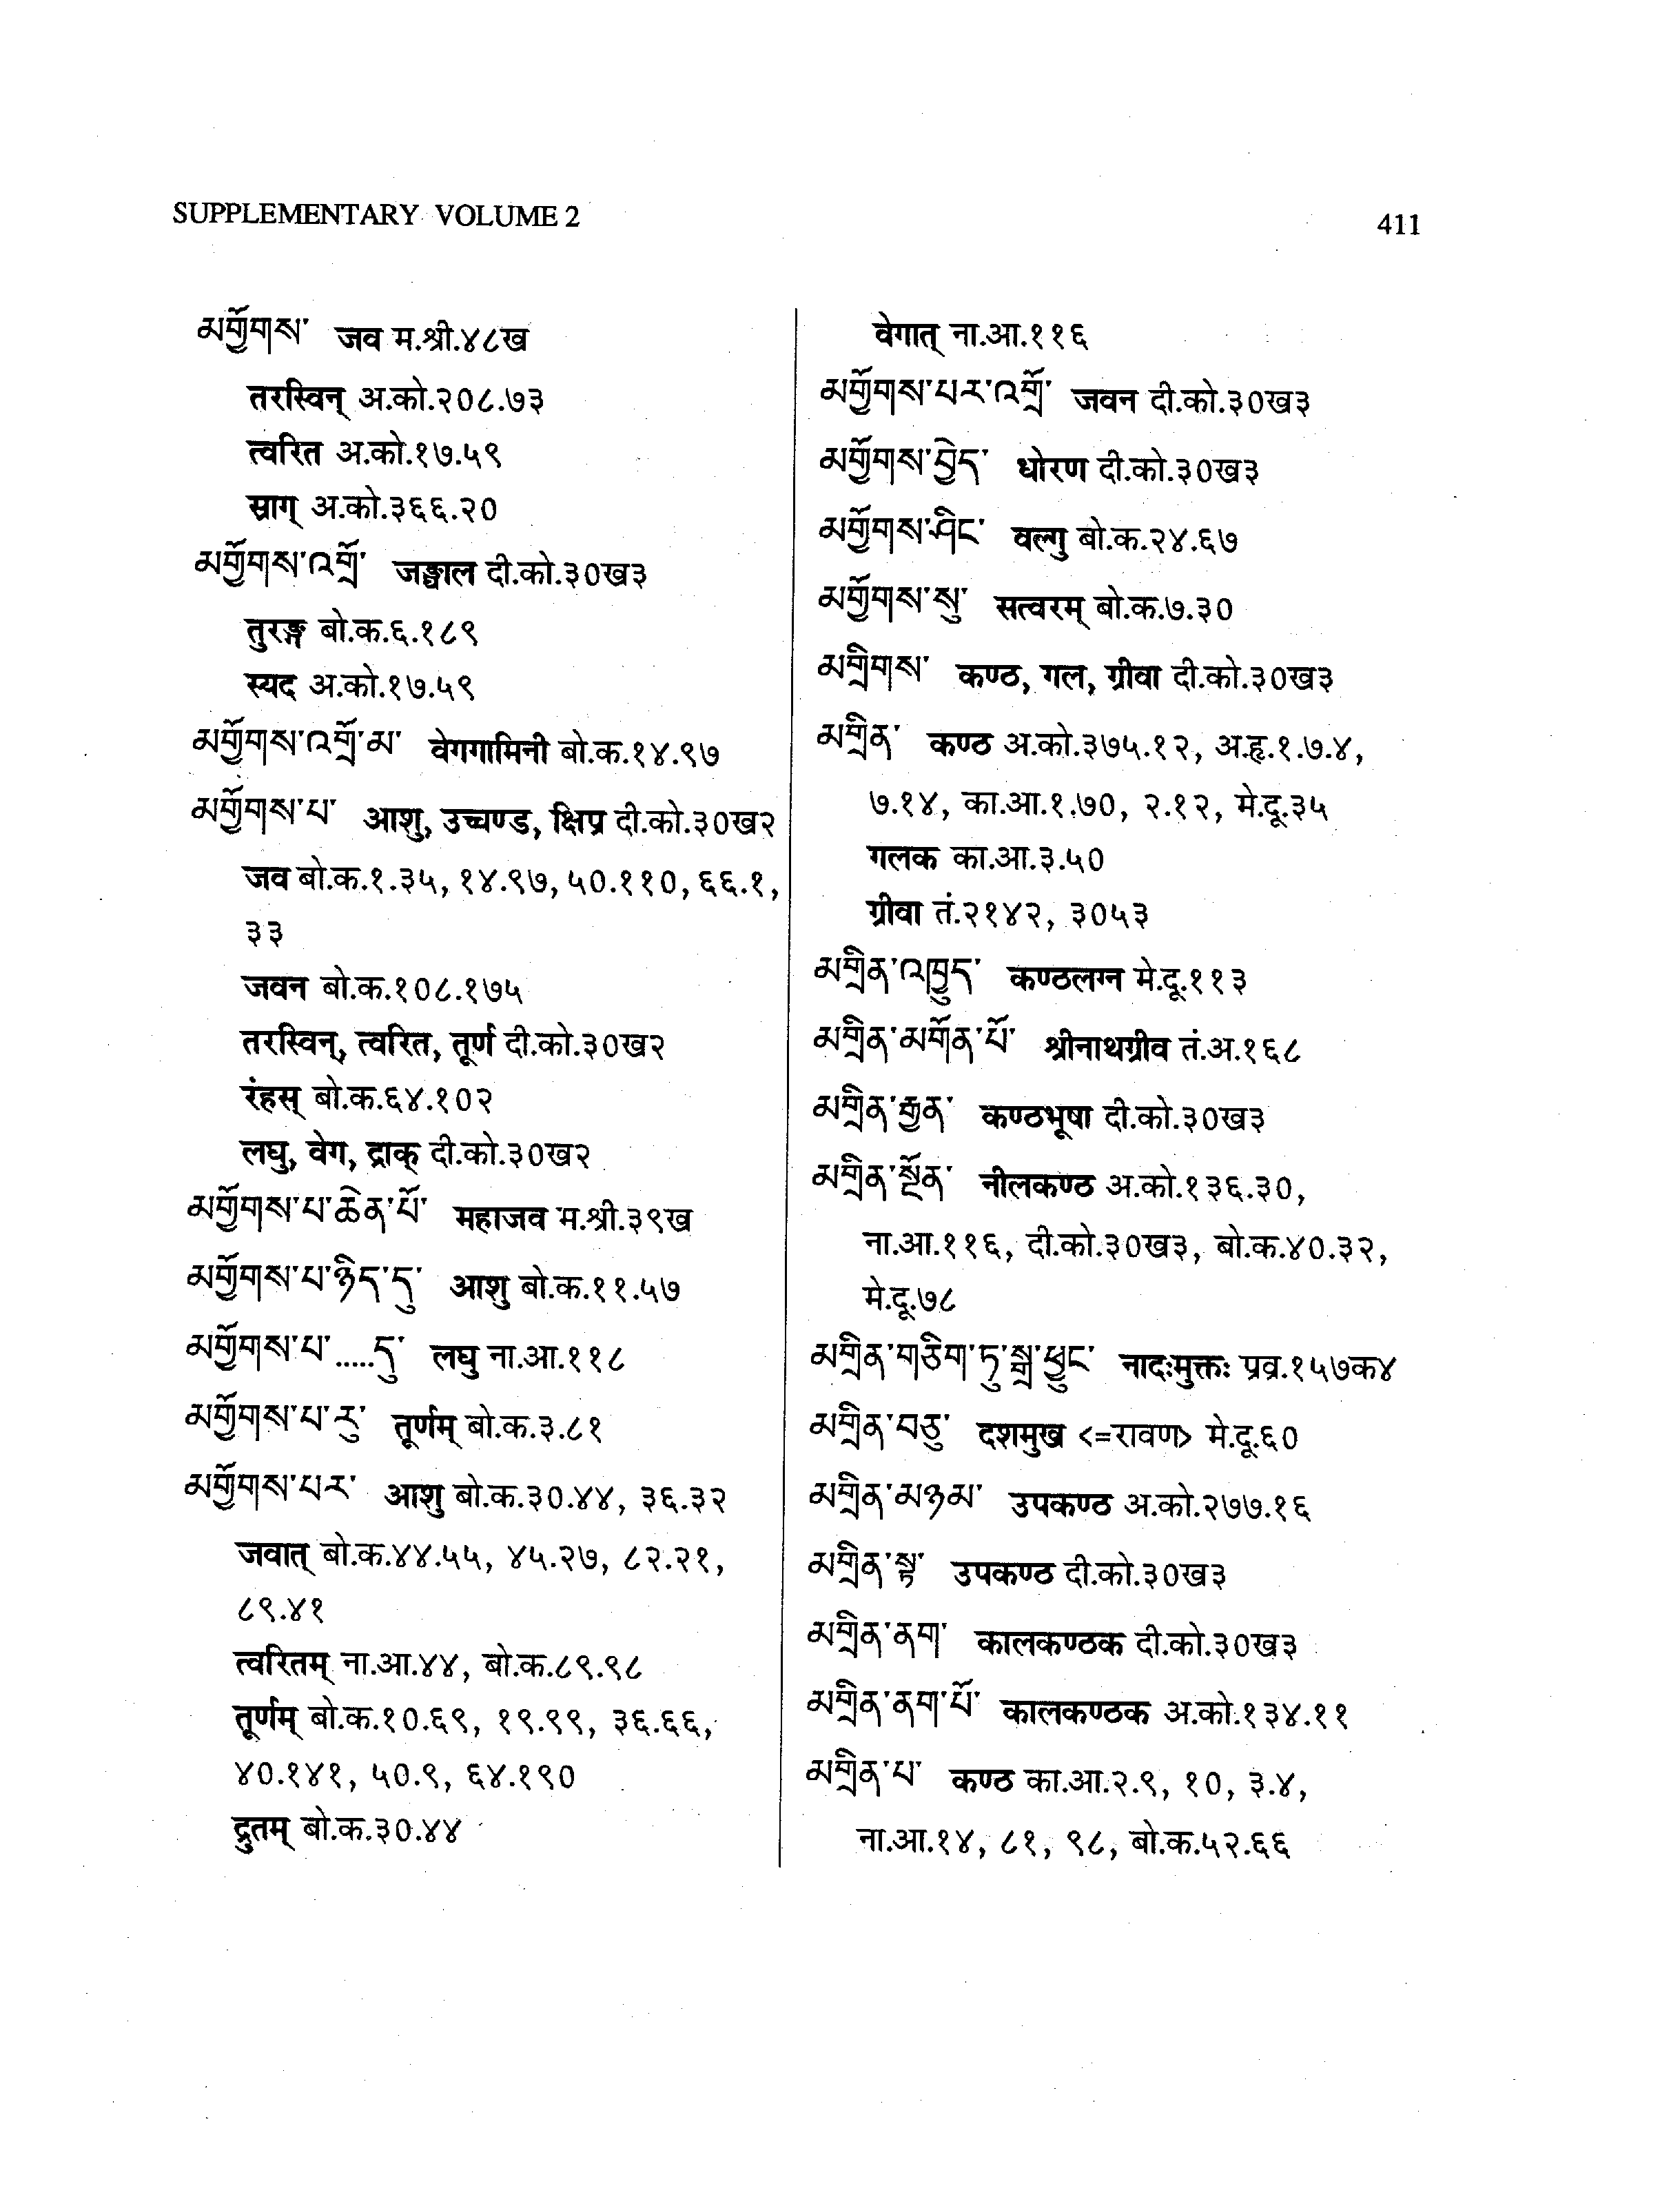 SUPPLEMENTARY VOLUME 2
411
མགྱོགས་ जव म.श्री.४८ख
तरस्विन् अ.को.२०८.७३
त्वरित अ.को.१७.५९
स्राग् अ.को.३६६.२०
མགྱོགས་འགྲོ་ जङ्घाल दी.को.३०ख३
तुरङ्ग बो.क.६.१८९
स्यद अ.को.१७.५९
མགྱོགས་འགྲོ་མ་ वेगगामिनी बो.क.१४.९७
མགྱོགས་པ་ आशु, उच्चण्ड, क्षिप्र दी.को.३०ख२
जव बो.क.१.३५, १४.९७, ५०.११०, ६६.१,
३३
जवन बो.क.१०८.१७५
तरस्विन्, त्वरित, तूर्ण दी.को.३०ख२
रंहस् बो.क.६४.१०२
लघु, वेग, द्राक् दी.को.३०ख२
མགྱོགས་པ་ཆེན་པོ་ महाजव म.श्री.३९ख
མགྱོགས་པ་ཉིད་དུ་ आशु बो.क.११.५७
མགྱོགས་པ་.....དུ་ लघु ना.आ.११८
མགྱོགས་པ་རུ་ तूर्णम् बो.क.३.८१
མགྱོགས་པར་ आशु बो.क.३०.४४, ३६.३२
जवात् बो.क.४४.५५, ४५.२७, ८२.२१,
८९.४१
त्वरितम् ना.आ.४४, बो.क.८९.९८
तूर्णम् बो.क.१०.६९, १९.९९, ३६.६६,
४०.१४१, ५०.९, ६४.१९०
द्रुतम् बो.क.३०.४४
वेगात् ना.आ.११६
མགྱོགས་པར་འགྲོ་ जवन दी.को.३०ख३
མགྱོགས་བྱེད་ धोरण दी.को.३०ख३
མགྱོགས་ཤིང་ वल्गु बो.क.२४.६७
མགྱོགས་སུ་ सत्वरम् बो.क.७.३०
མགྲིགས་ कण्ठ, गल, ग्रीवा दी.को.३०ख३
མགྲིན་ कण्ठ अ.को.३७५.१२, अ.हृ.१.७.४,
७.१४, का.आ.१.७०, २.१२, मे.दू.३५
गलक का.आ.३.५०
ग्रीवा तं.२१४२, ३०५३
མགྲིན་འཁྱུད་ कण्ठलग्न मे.दू.११३
མགྲིན་མགོན་པོ་ श्रीनाथग्रीव तं.अ.१६८
མགྲིན་རྒྱན་ कण्ठभूषा दी.को.३०ख३
མགྲིན་སྔོན་ नीलकण्ठ अ.को.१३६.३०,
ना.आ.११६, दी.को.३०ख३, बो.क.४०.३२,
मे.दू.७८
མགྲིན་གཅིག་ཏུ་སྒྲ་ཕྱུང་ नादःमुक्तः प्रव्र.१५७क४
མགྲིན་བཅུ་ दशमुख <=रावण> मे.दू.६०
མགྲིན་མཉམ་ उपकण्ठ अ.को.२७७.१६
མགྲིན་སྟ་ उपकण्ठ दी.को.३०ख३
མགྲིན་ནག་ कालकण्ठक दी.को.३०ख३
མགྲིན་ནག་པོ་ कालकण्ठक अ.को.१३४.११
མགྲིན་པ་ कण्ठ का.आ.२.९, १०, ३.४,
ना.आ.१४, ८१, ९८, बो.क.५२.६६